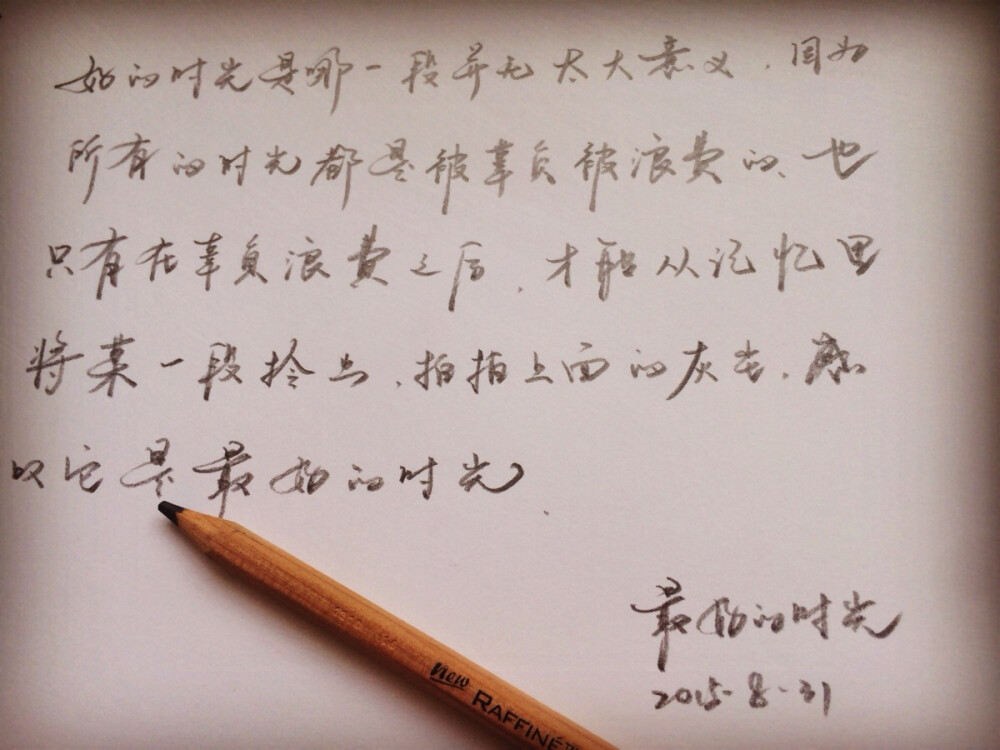 好的时光是哪一段并无太大意义，因为
所有的时光都是被辜负被浪费的，也
只有在辜负浪费之后，才能从记忆里
将某一段拎出，拍拍上面的灰尘，感
叹它是最好的时光。
最好的时光
2015-8-31
new RAFFINÉ